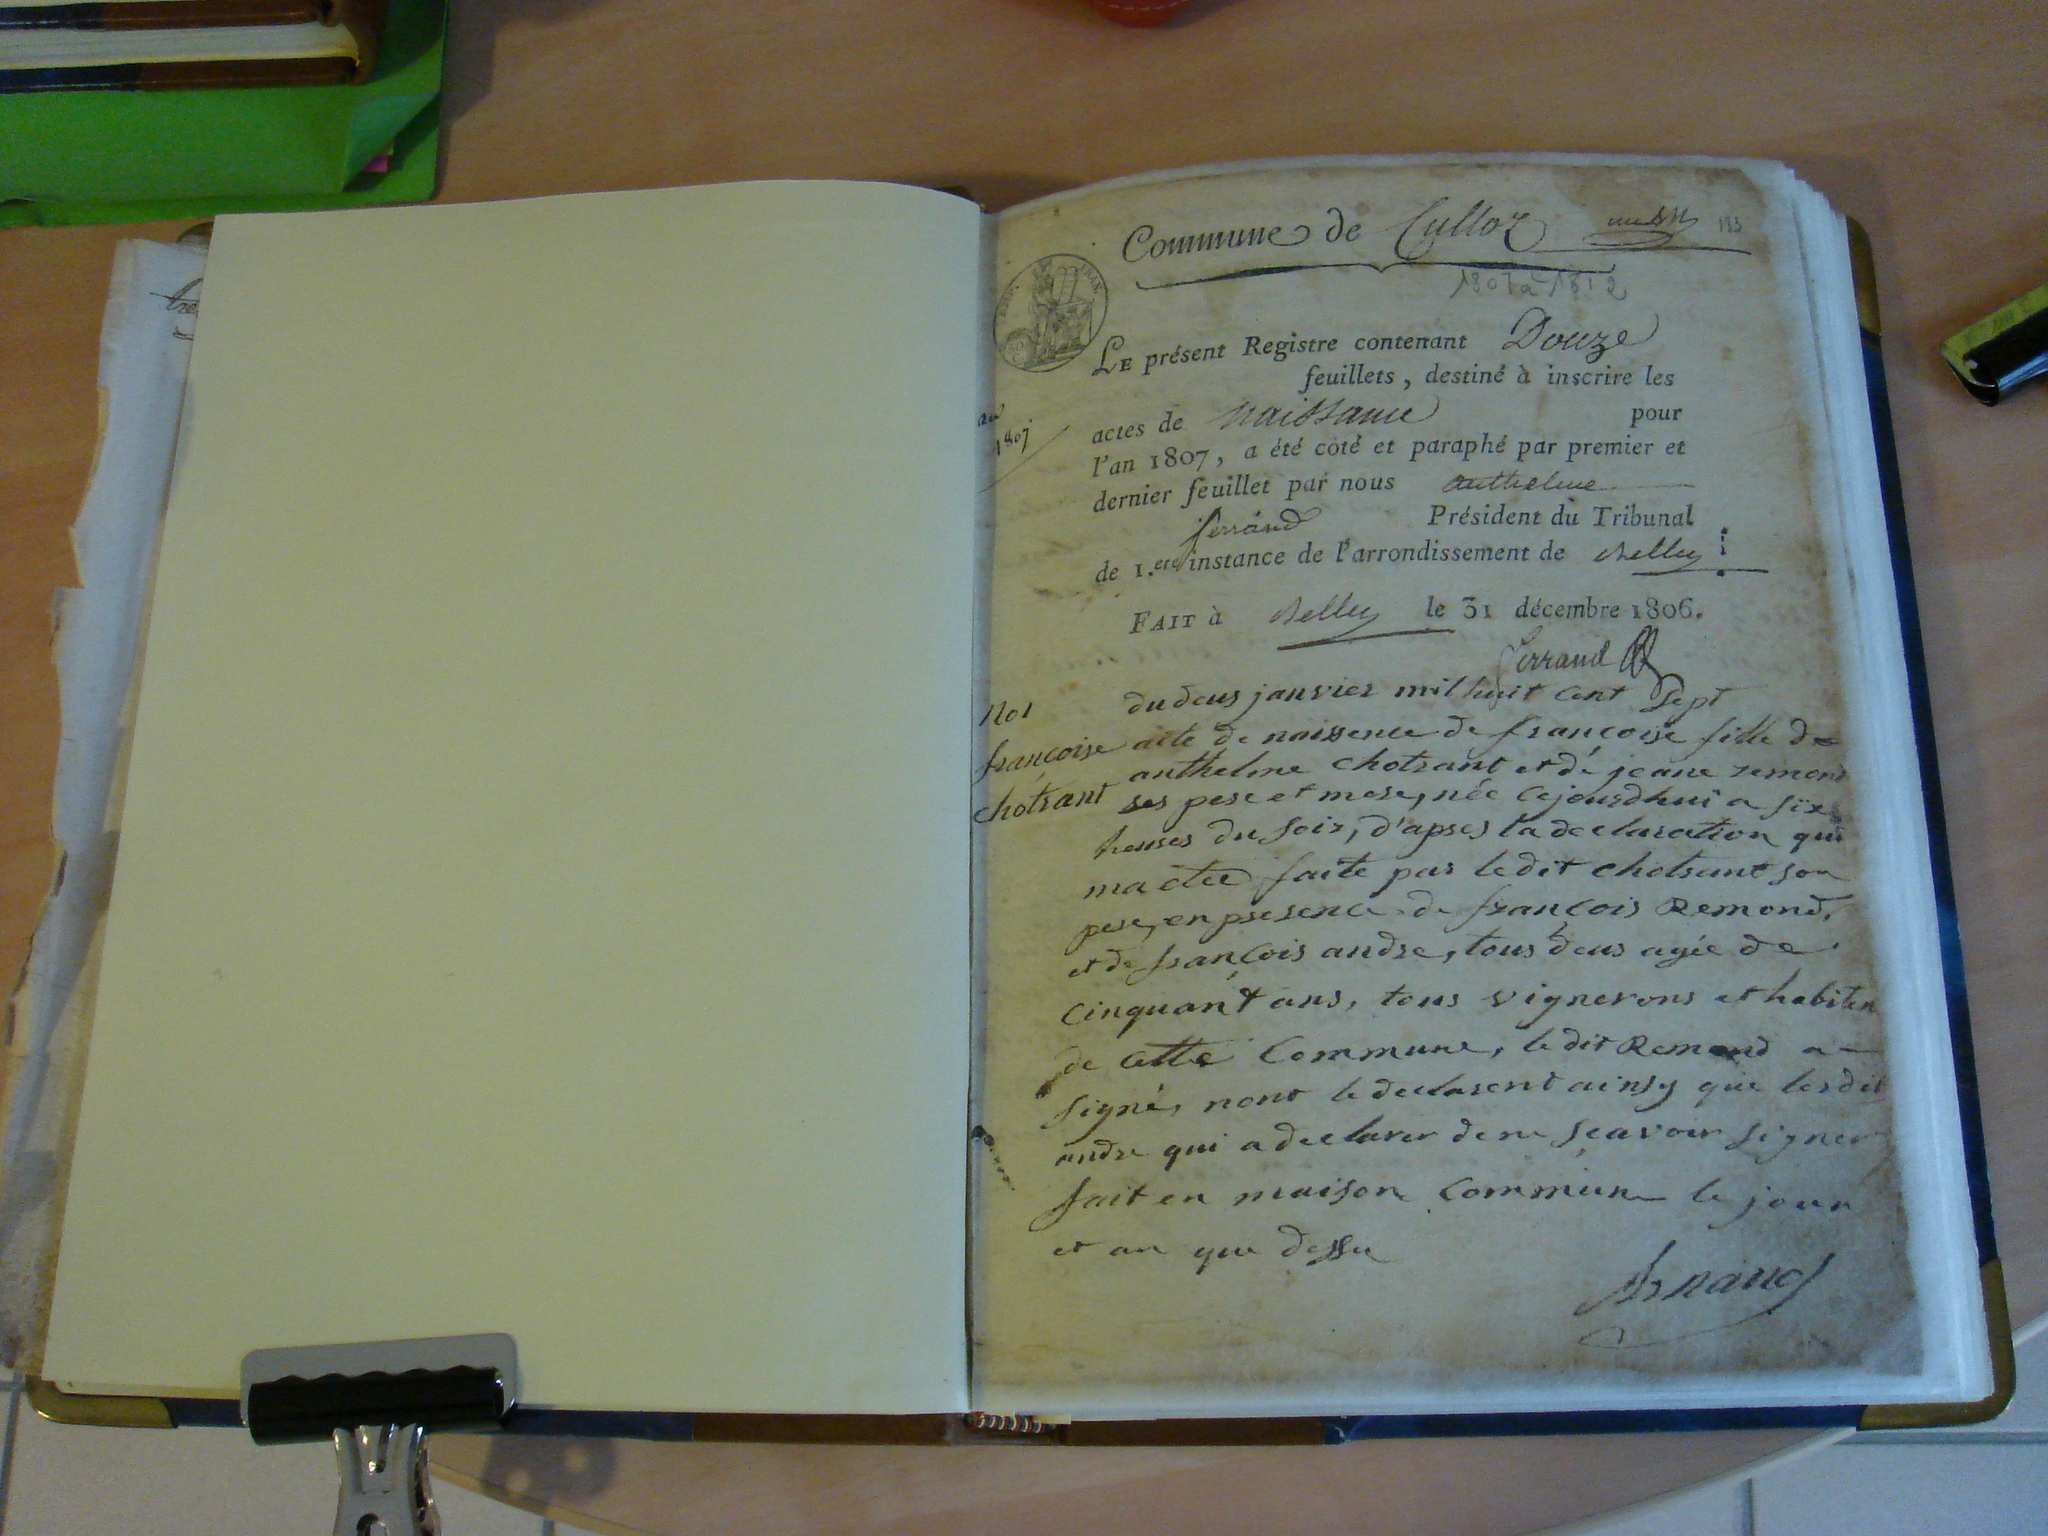 Commune de Culloz
193
1807 a 1812
REP. FRAN.
LE présent Registre contenant Douze
feuillets, destiné à inscrire les
actes de naissance pour
l'an 1807, a été coté et paraphé par premier et
dernier feuillet par nous anthelme
ferrand Président du Tribunal
de 1.ere instance de l'arrondissement de Belley
FAIT à Belley le 31 décembre 1806.
ferrand
an
1807
No 1
françoise
chotrant
du deus janvier mil huit cent Sept
acte de naissence de françoise fille de
anthelme chotrant et de jeane remond
ses pere et mere, née cejourdhui a six
heures du soir, d'apres la declaration qui
ma etee faite par le dit chotrant son
pere, en presence de françois Remond,
et de françois andre, tous deus agée de
cinquant ans, tous vignerons et habiten
de cette Commune, le dit Remond a
signé, nont le declarent ainsy que les dit
andre qui a declarer de ne seavoir signer
fait en maison Commune le jour
et an que dessu
Arnaud